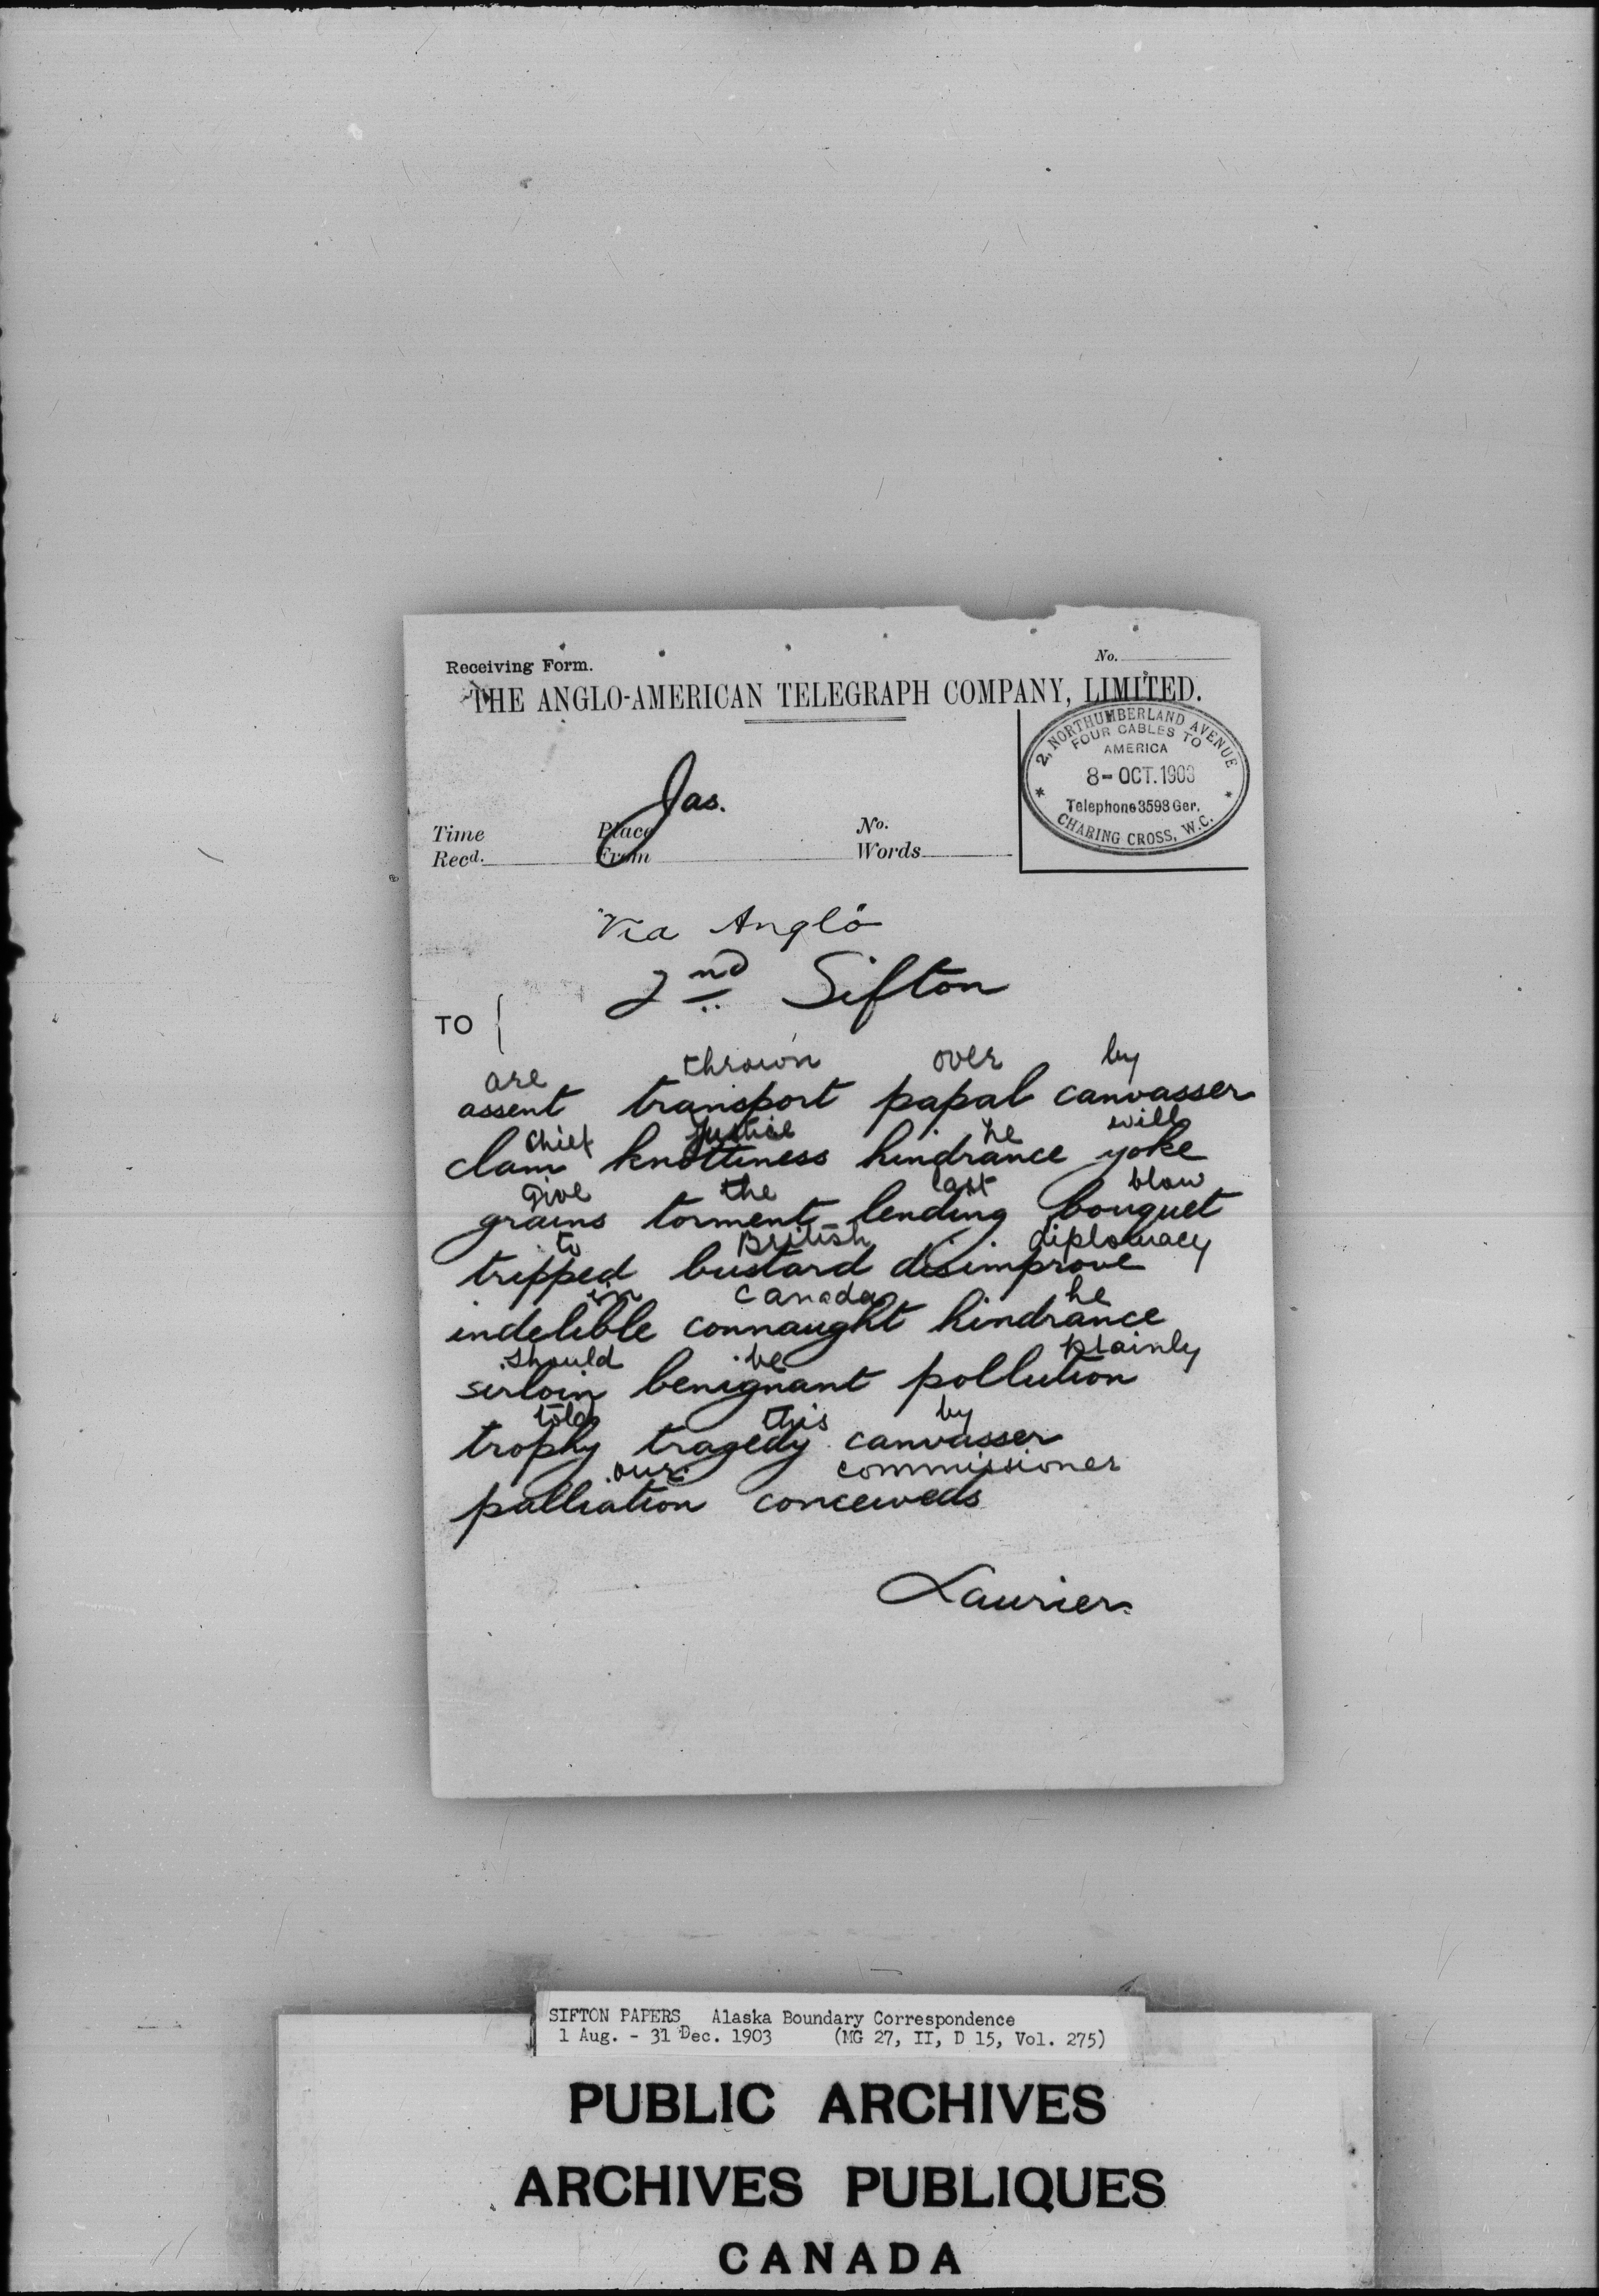 Receiving Form.
No.
THE ANGLO-AMERICAN TELEGRAPH COMPANY, LIMITED.
2, NORTHUMBERLAND AVENUE
FOUR CABLES TO
AMERICA
8-OCT.1903
Telephone 3598 Ger.
* CHARING CROSS, W.C. *
Jas.
Time Place No.
Recd. From Words
Via Anglo
2nd Sifton
TO
are thrown over by
assent transport papal canvasser
chief justice he will
clam knottiness hindrance yoke
give the last blow
grains torment lending bouquet
to British diplomacy
tripped bustard disimprove
in canada he
indelible connaught hindrance
should be plainly
sirloin benignant pollution
told this by
trophy tragedy canvasser
our commissioner
palliation conceweds
Laurier
SIFTON PAPERS Alaska Boundary Correspondence
1 Aug. - 31 Dec. 1903 (MG 27, II, D 15, Vol. 275)
PUBLIC ARCHIVES
ARCHIVES PUBLIQUES
CANADA